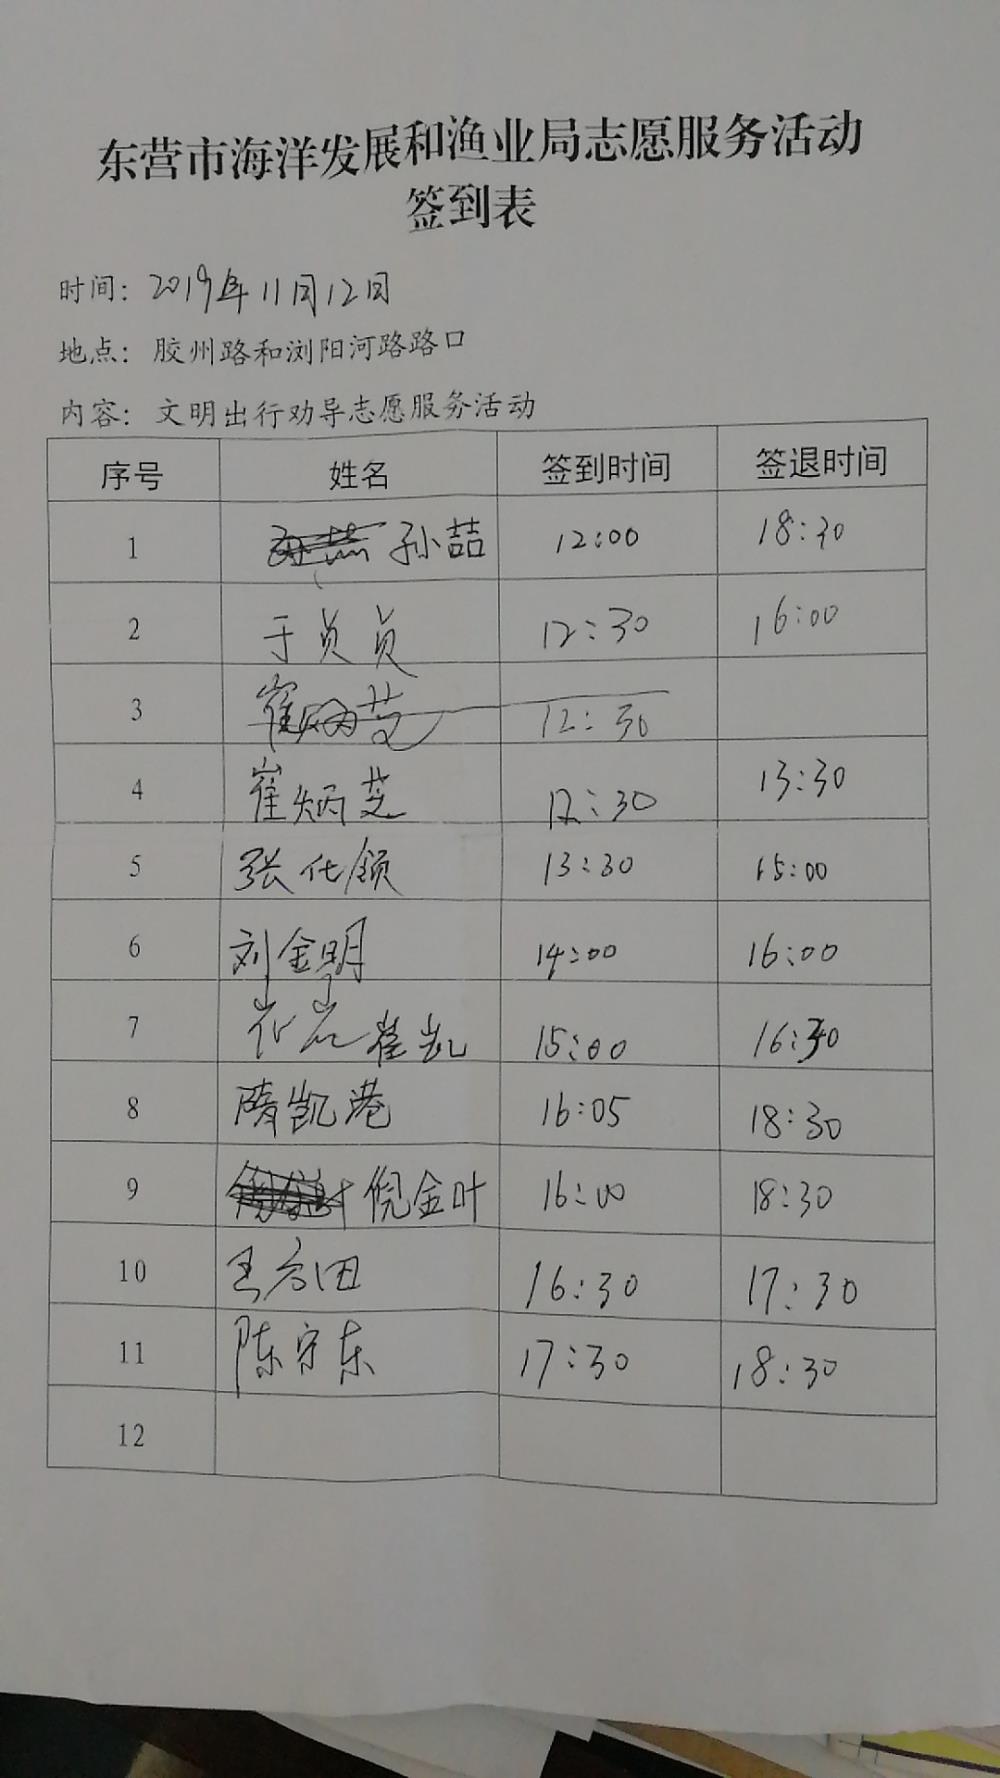 东营市海洋发展和渔业局志愿服务活动
签到表
时间：2019年11月12日
地点：胶州路和浏阳河路路口
内容：文明出行劝导志愿服务活动
序号 姓名 签到时间 签退时间
1 孙喆 12:00 18:30
2 于贞贞 12:30 16:00
3 崔炳芝 12:30
4 崔炳芝 12:30 13:30
5 张化领 13:30 15:00
6 刘金明 14:00 16:00
7 崔凯 15:00 16:30
8 隋凯港 16:05 18:30
9 倪金叶 16:00 18:30
10 王 田 16:30 17:30
11 陈守东 17:30 18:30
12